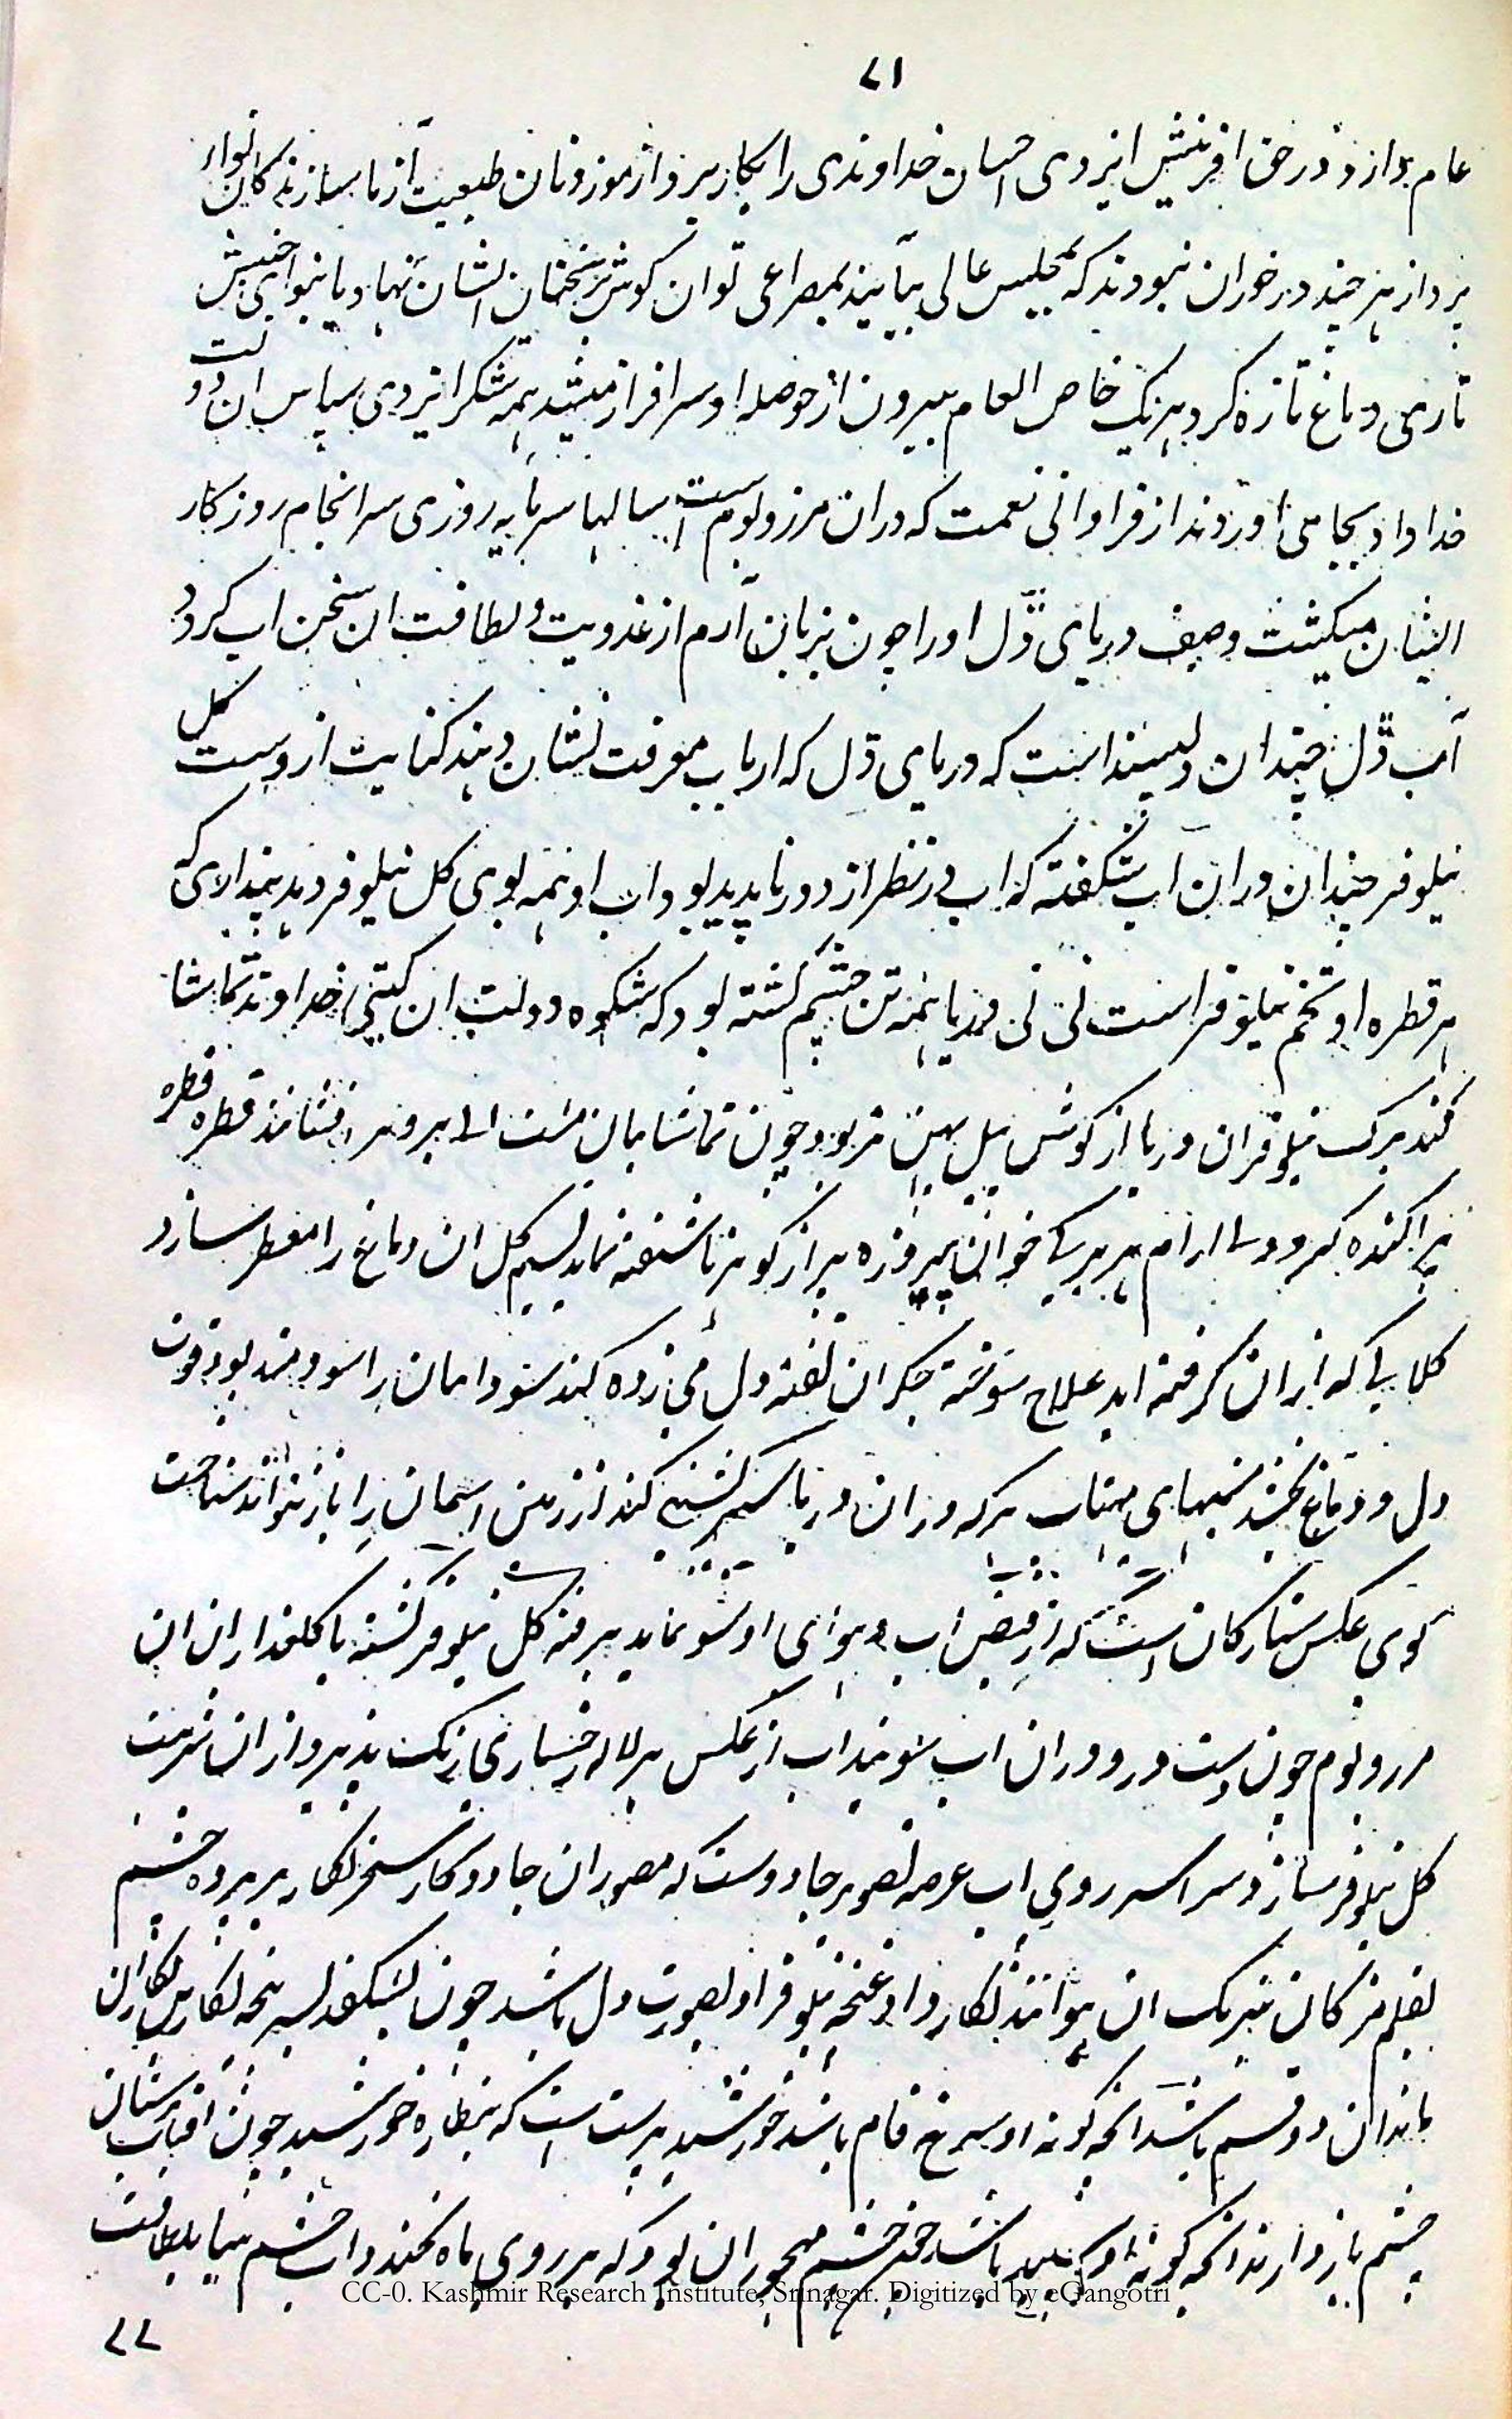 ۷۱
عام بدارد و در حق افرینش ایزدی احسان خداوندی را بکار برد و از موزونان طبعیت آزما سازنه کان نواء
پرداز هر چند در خوران نبودند که بمجلیس عالی بیآیند بمصراعی توان کوش بر سخنان الشان نهاد و یا بنوای خنیش
تاری دماغ تازه کرد هر یک خاص العام بیرون از حوصله او سرافراز میشد همه شکر ایزدی سپاس ان دولت
خدا داد بجا می اوردند از فراوانی نعمت که دران مرز و بوم است سالها سرمایه روزی سرانجام روزکار
الیشان میکشت وصف دریای ڈل اورا چون بزبان آرم از عذوبیت و لطافت ان سخن اب کردد
آب ڈل چندان دلپسند است که دریای دل که ارباب معرفت نشان دهند کنایت ازوست کل
نیلوفر چندان دران اب شکفته که اب در نظر از دور ناپدید بود اب او همه بوی کل نیلوفر دهد پندالای که
هر قطره او تخم نیلوفر است نی نی دریا همه تن چشم کشته بود که شکوه دولت ان کیتی خداوند تماشا
کند برک نیلوفران دریا از کوش پیل پهن تر بود چون تماشایان مشت ابی برو بر افشانند قطره قطره
پراکنده کردد ارام هر برکی خوان پیروزه پر از کوهر ناسفته نماید نسیم کل ان دماغ را معطر سازد
کلابی که ازان کرفته اید علاج سوخته جکران تفته دل می زده کند سودامان را سودمند بود قوت
دل و دماغ بخشد شبهای مهتاب هرکه دران دریا سیر کشتی کند از زمین اسمان را باز نتواند شناخت
کوی عکس ستارکان است که از فیض اب و هوای او نشو نماید پرفته کل نیلوفر کشته با کلعذاران ان
مرز و بوم چون دست و رو دران اب شویند اب از عکس هر لاله رخساری رنک پذیرد ازان شربت
کل نیلوفر سازد سراسر روی اب عرصه تصویر جادوست که مصوران جادو کار سحر نکار بر پرده چشم
بقلم مژکان نیرنک ان هوا نتند نکارد اد غنچه نیلوفر او بصورت دل باشد چون بشکفد بسر پنجه نکارین نکاران
ماند ان دو قسم باشد انچه کونه او سرخ فام باشد خورشید پرست است که بنظاره خورشید چون افتاب پرستان
چشم باز دارند انچه کونه او سپید باشد چشم مهجوران بود که بر روی ماه نخندد اب چشم بینا بلطافت
CC-0. Kashmir Research Institute, Srinagar. Digitized by eGangotri
۷۲